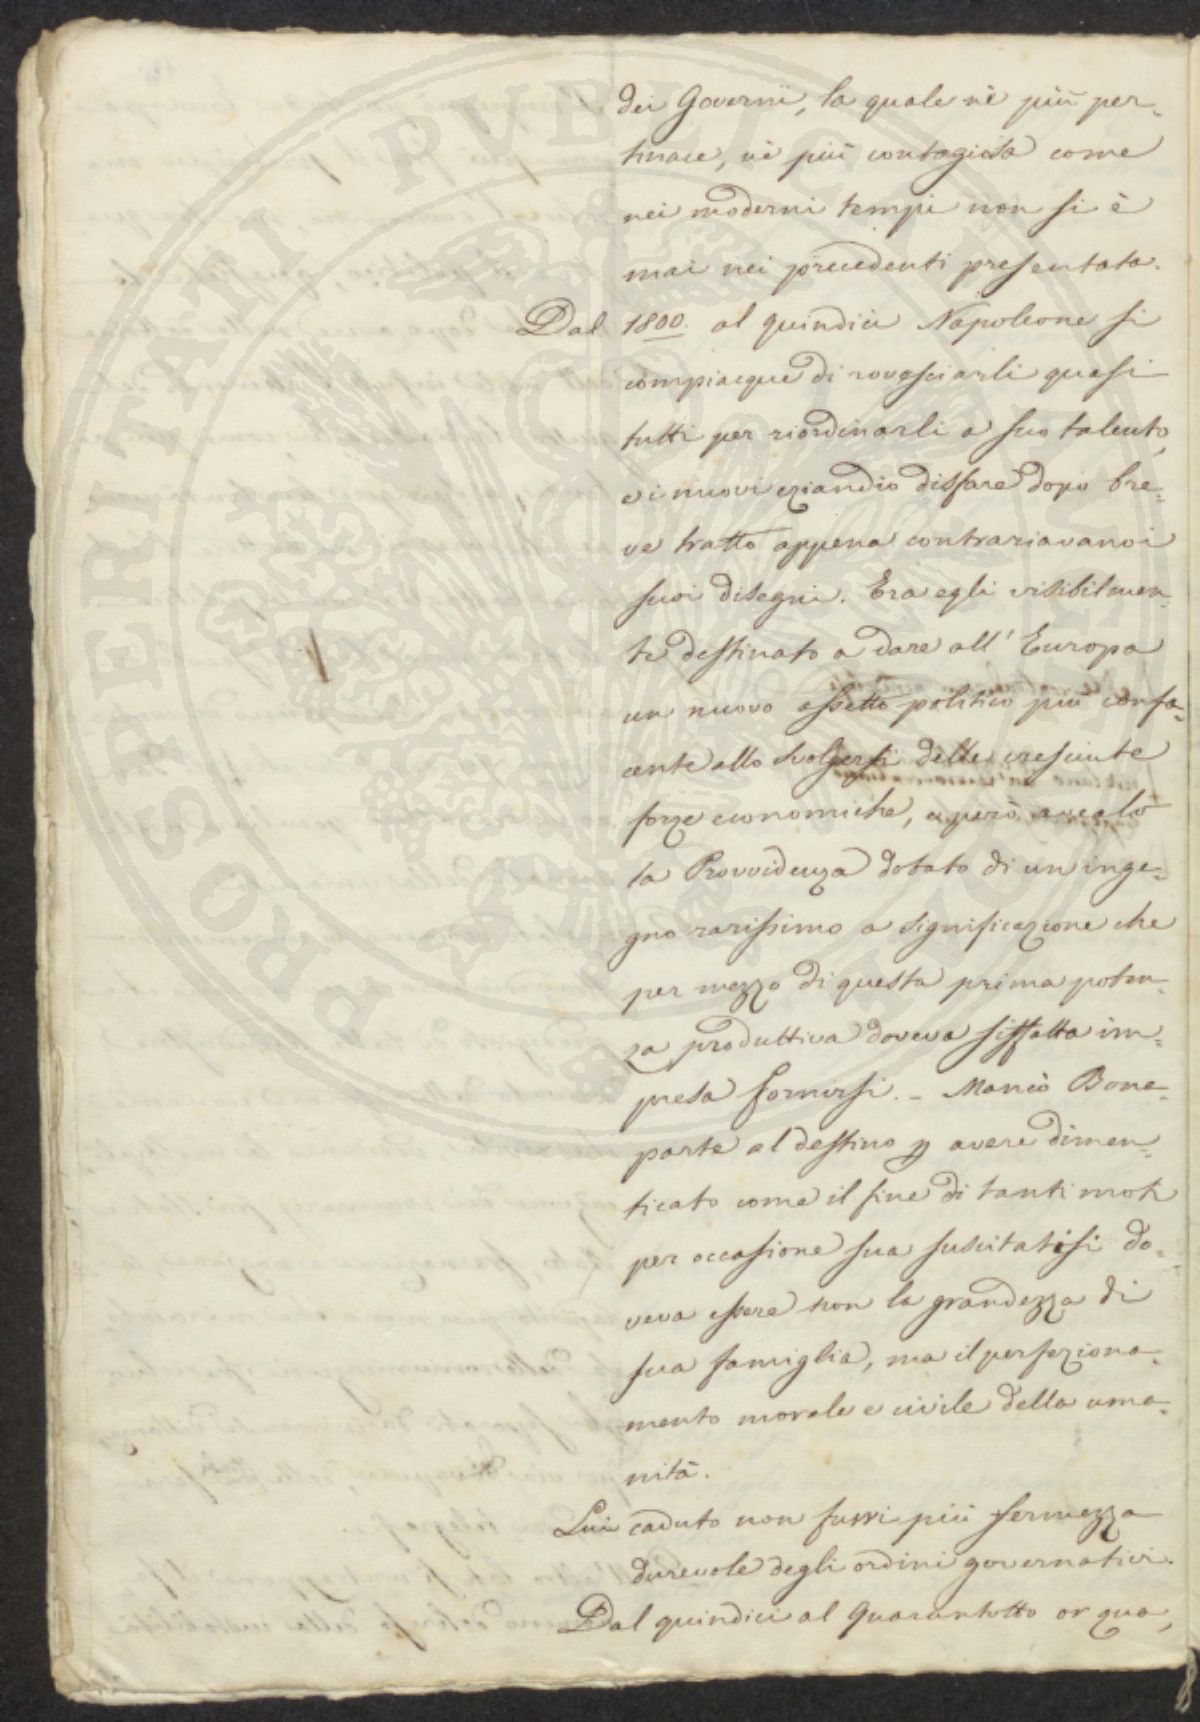 dei Governi, la quale nè più per-
tinace, nè più contagiosa come
nei moderni tempi non si è
mai nei precedenti presentata.
Dal 1800. al quindici Napoleone si
compiacque di rovesciarli quasi
tutti per riordinarli a suo talento,
e i nuovi eziandio disfare dopo bre-
ve tratto appena contrariavano i
suoi disegni. Era egli visibilmen-
te destinato a dare all' Europa
un nuovo assetto politico più confa-
cente allo svolgersi delle cresciute
forze economiche, e però avealo
la Provvidenza dotato di un inge-
gno rarissimo a significazione che
per mezzo di questa prima poten-
za produttiva doveva siffatta im-
presa fornirsi. - Mancò Bona-
parte al destino p avere dimen-
ticato come il fine di tanti moti
per occasione sua suscitatisi do-
veva essere non la grandezza di
sua famiglia, ma il perfeziona-
mento morale e civile della uma-
nità.
Lui caduto non fuvvi più fermezza
durevole degli ordini governativi.
Dal quindici al Quarantotto or qua,
PROSPERITATI PVBLICAE